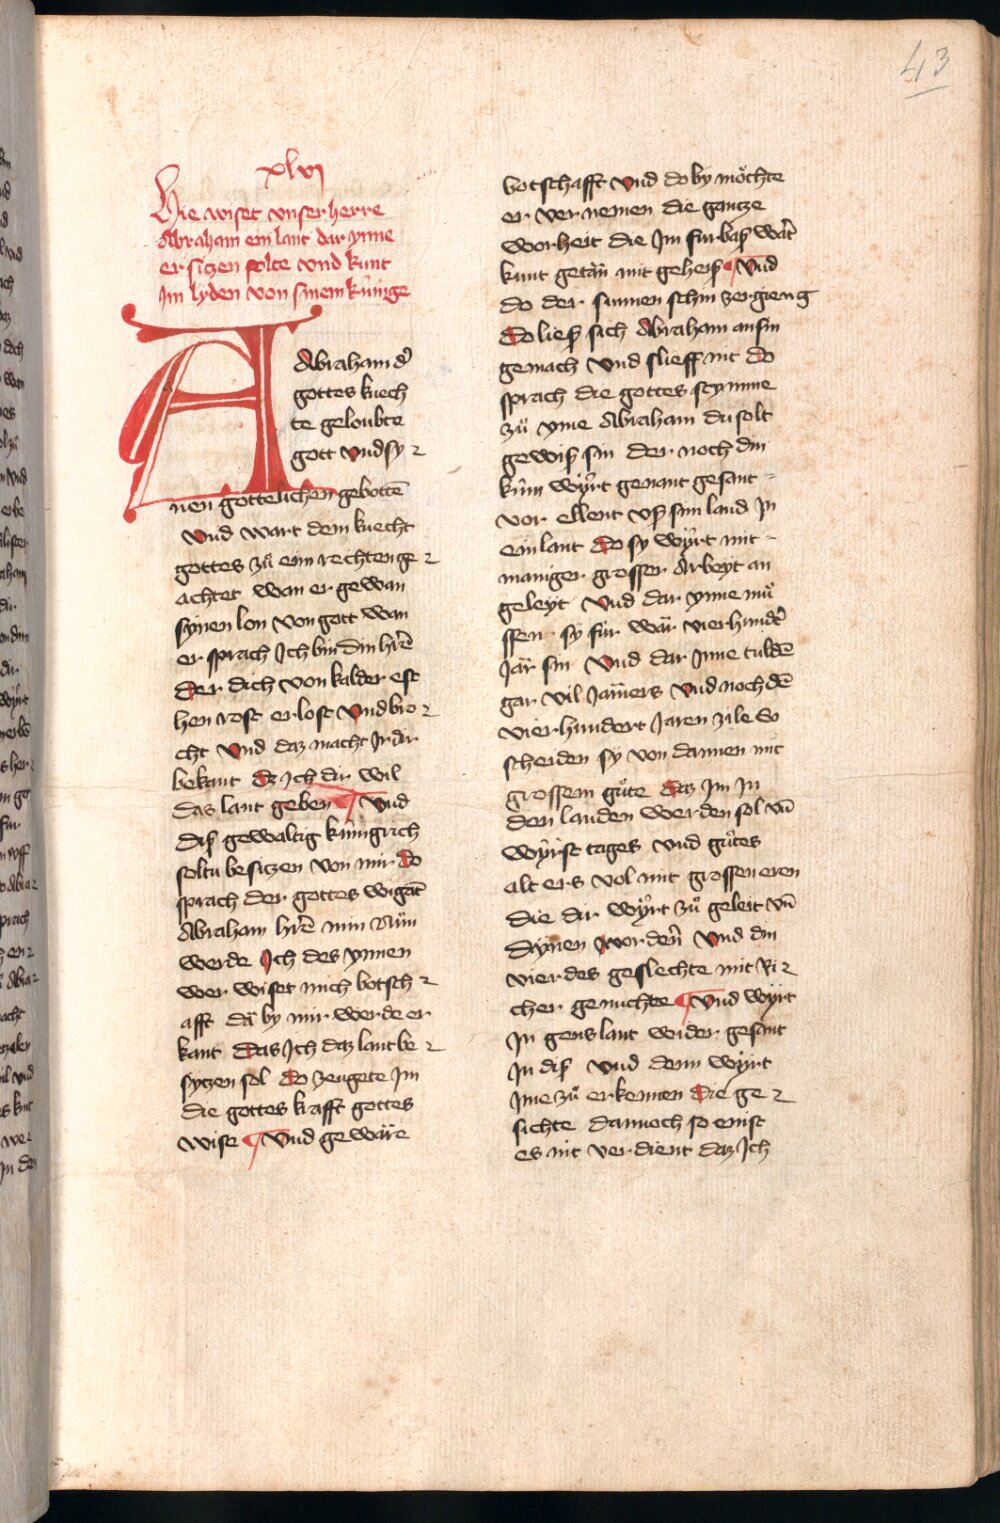 43
xlvi
Hie wiset vnser herre
Abraham ein lant dar ynne
er sizen solte vnd kunt
Im lyden von sinem kúnige
A Abraham dˀ
gottes knech
te geloubte
gott vnd sy
nen gottelichen gebottē
vnd wart dem knecht
gottes zuͦ eim rechten ge
achtet wan er gewan
synen lon von gott wan
er sprach Ich bin din hrē
der dich von kalder esc
hen rost erlost vnd bro
cht vnd daz macht Ir dir
bekant dz ich dir wil
das lant geben ¶ vnd
dis gewaltig kúnigrich
soltu besiczen von mir do
sprach der gottes wigāt
Abraham hrē min
werde Ich des ynnen
wer wiset mich botsch
afft dä by mir werde er
kant das Ich daz lant be
syczen sol do zeugete Im
die gottes krafft gottes
wise ¶ vnd gewäre
botschafft vnd do by möchte
er vernemen die gancze
worheit die Im furbas wärˀ
kunt getän mit geheis ¶ vnd
do der sunnen schin zergieng
do lies sich Abraham an sin
gemach vnd slieff nit do
sprach die gottes stymme
zuͦ yme Abraham du solt
gewis sin der noch din
kúnn wÿrt genant gesant
vor ellent vs sim land In
ein lant do sy wÿrt mit
maniger grosser Arbeyt an
geleyt vnd dar ynne muͦ
ssen sy für wär vierhundˀt
Jär sin vnd dar Inne tuldē
gar vil Jämers vnd noch dē
vierhundert Jaren zile so
scheiden sy von dannen mit
grossem guͦte daz Im In
den landen werden sol vn̄
wÿrst tages vnd guͦtes
alters vol mit grossen eren
die dir wÿrt zuͦ geleit vn̄
dÿnen vordern̄ vnd din
vierdes geslechte mit Ri
cher genuchte ¶ vnd wÿrt
In gens lant wider gesant
In dis vnd denn wÿrt
Ime zuͦ erkennen die ge
sichte dannoch so enist
es nit verdient daz Ich